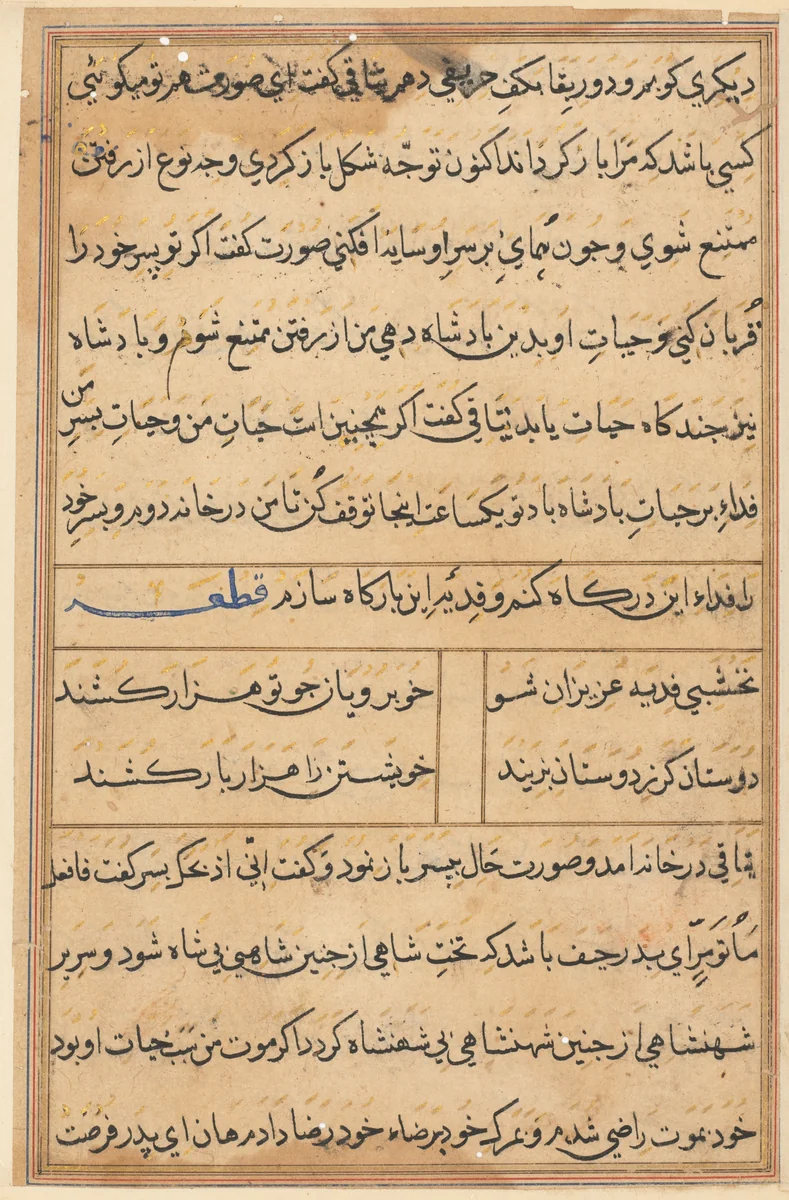 دیکری کو بمرود و ربقا بکف حریفی دهم یتاقی کفت ای صورت هم تو میکوئی
کسی باشد که مرا باز کرداند اکنون توجه شکل باز کردی وجه نوع از رفتن
ممتنع شوی و جون همای بر سر او سایه افکنی صورت کفت اکر تو پسر خود را
قربان کنی و حیات او بدین بادشاه دهی من از رفتن ممتنع شوم و بادشاه
نیز جند کاه حیات یابد یتاقی کفت اکر همچنین است حیات من و حیات بسر من
فداء بر حیات بادشاه باد تو یکساعت اینجا توقف کن تا من در خانه دوم و بسر خود
را فداء این درکاه کنم و فدیه این بارکاه سازم قطعه
نخشبی فدیه عزیزان شو
خوبرویان جو تو هزار کشند
دوستان کر نز دوستان بزیند
خویشتن را هزار بار کشند
یتاقی در خانه امد و صورت حال بپسر باز نمود و کفت انی اذبحک بسر کفت فافعل
ما تومر ای بدر حیف باشد که تخت شاهی از جنین شاهی بی شاه شود و سریر
شهنشاهی از جنین شهنشاهی بی شهنشاه کردد اکر موت من سبب حیات او بود
خود بموت راضی شدم و بمرک خود برضاء خود رضا دادم هان ای پدر فرصت